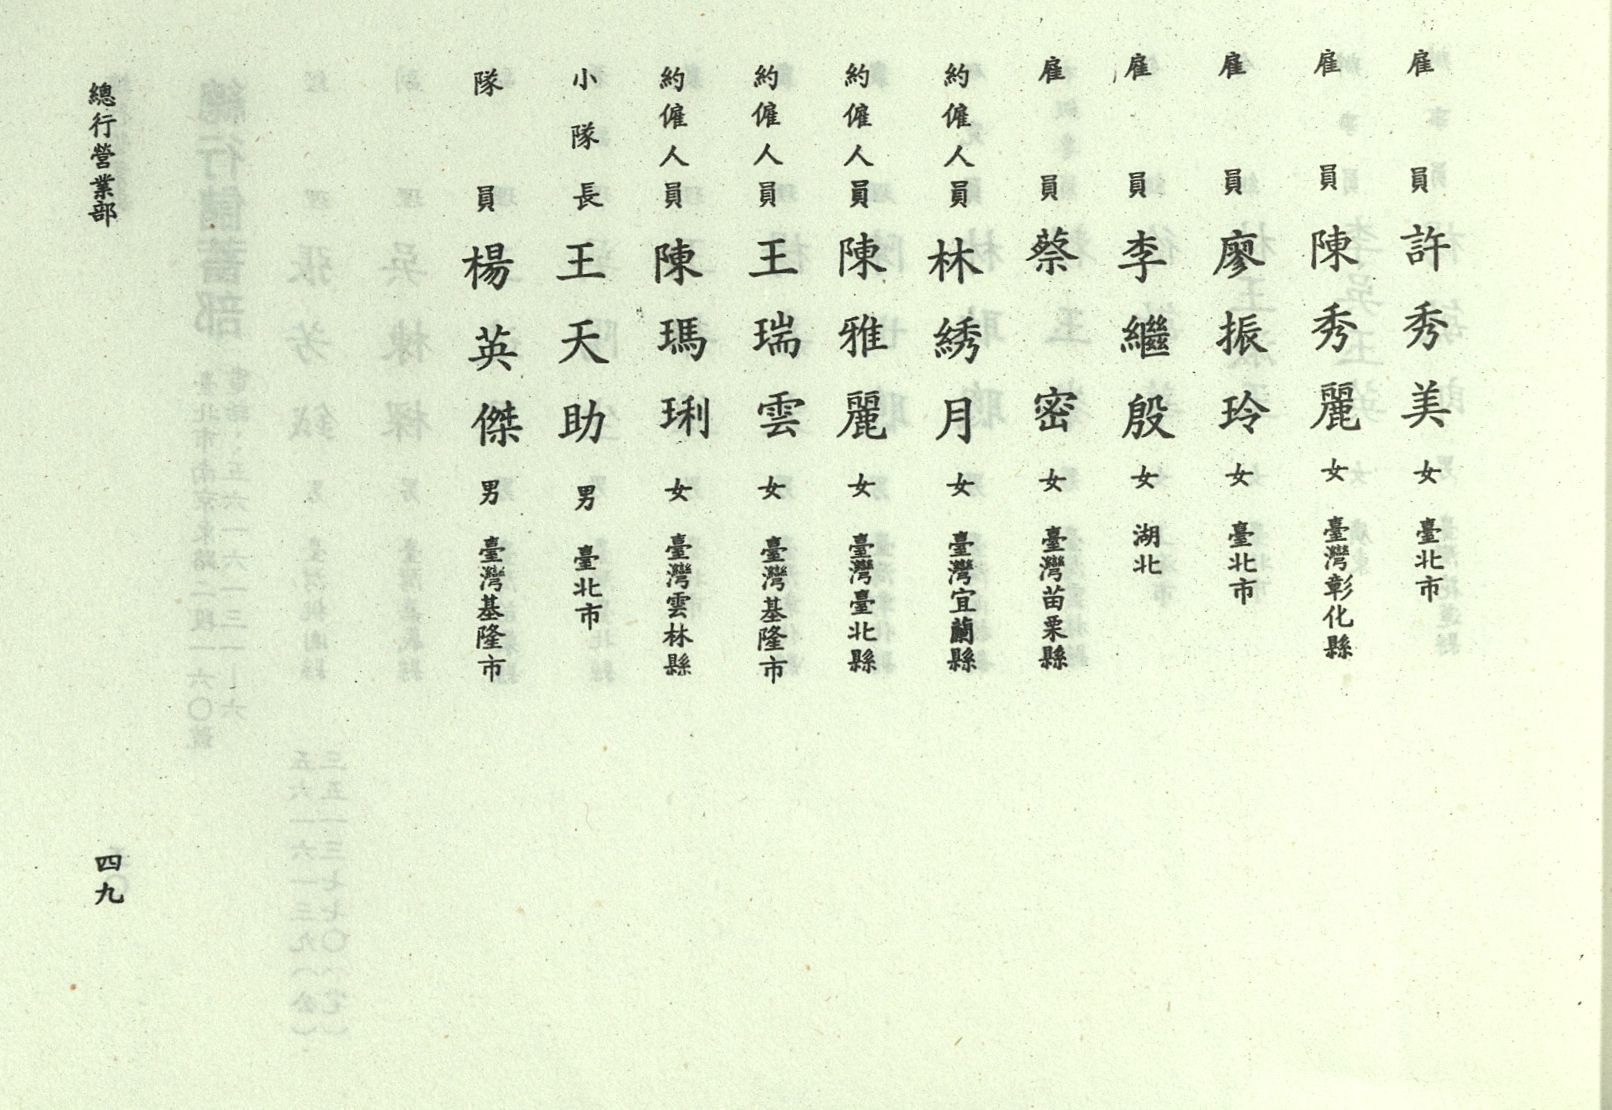 雇員許秀美女臺北市
雇員陳秀麗女臺灣彰化縣
雇員廖振玲女臺北市
雇員李繼殷女湖北
雇員蔡密女臺灣苗栗縣
約僱人員林綉月女臺灣宜蘭縣
約僱人員陳雅麗女臺灣臺北縣
約僱人員王瑞雲女臺灣基隆市
約僱人員陳瑪琍女臺灣雲林縣
小隊長王天助男臺北市
隊員楊英傑男臺灣基隆市
總行營業部
四九